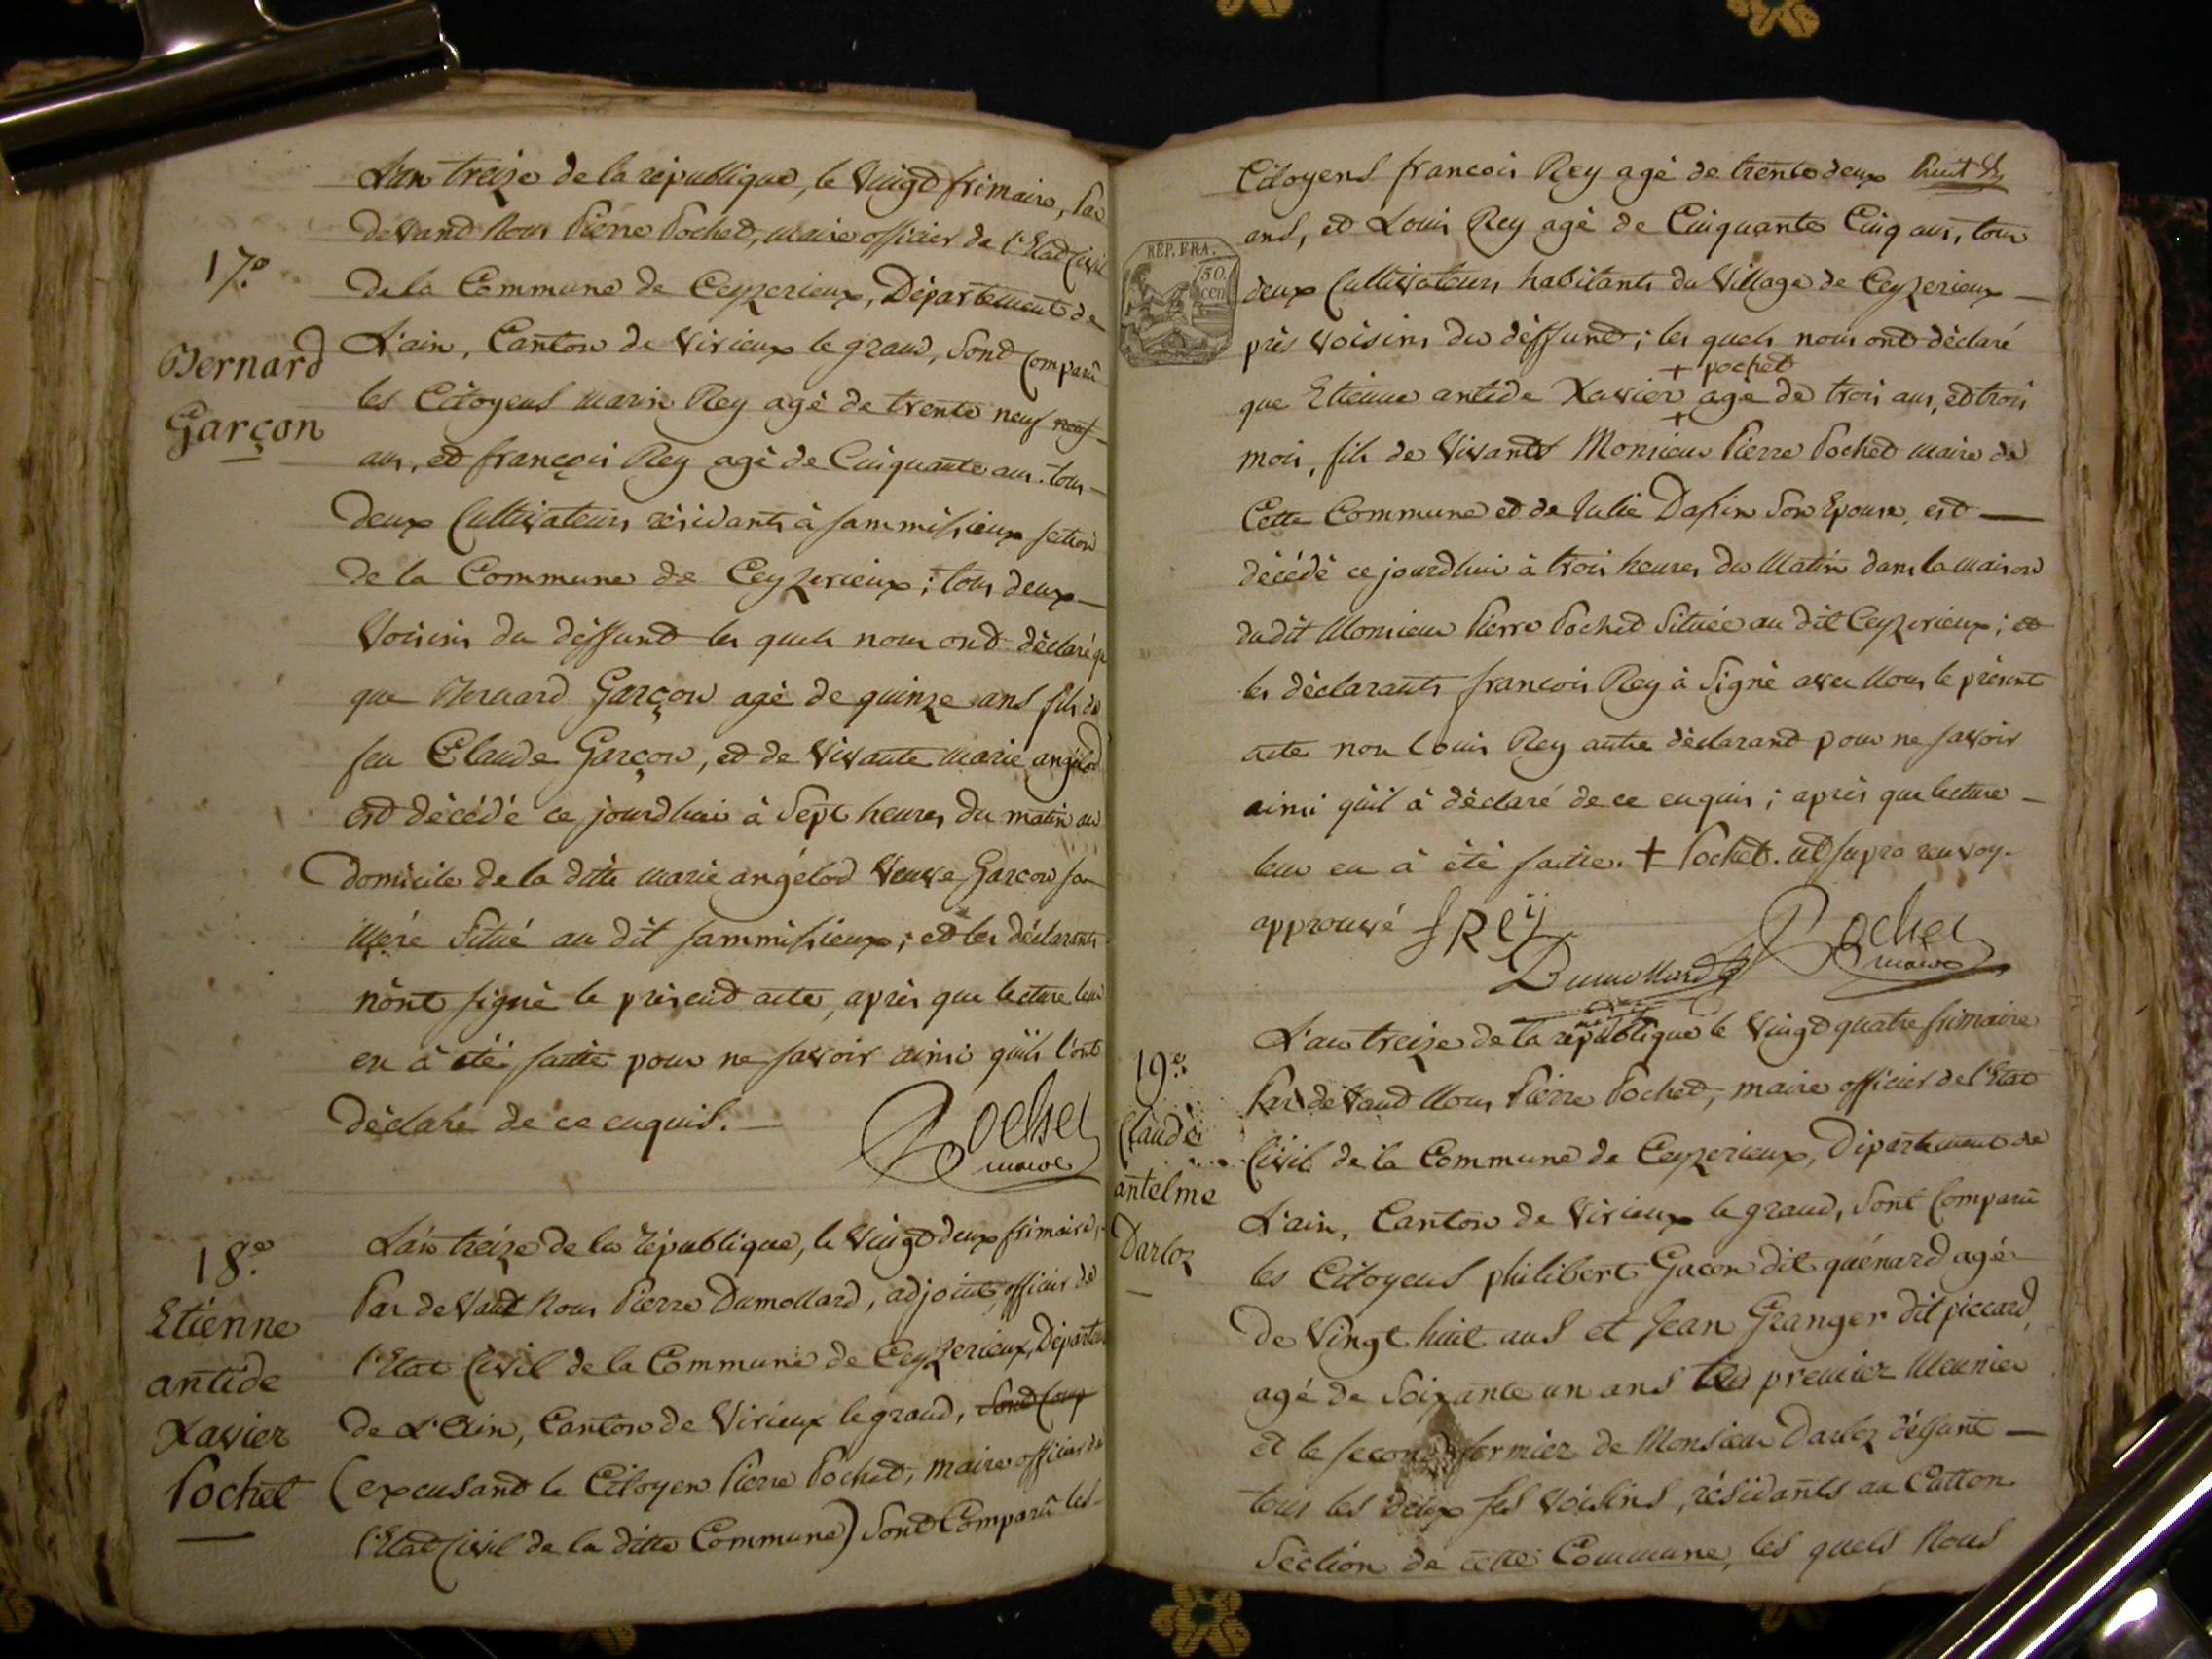 17.e
Bernard
Garçon
L'an treize de la république, le vingt frimaire, Par
devant Nous Pierre Pochet, maire officier de l'Etat Civil
de la Commune de Ceyzerieux, Département de
L'ain, Canton de Virieux le grand, Sont Comparû
les Citoyens marin Rey agé de trente neuf neuf
ans, et françois Rey agé de Cinquante ans. tous
deux Cultivateurs résidants à sammissieux section
de la Commune de Ceyzerieux ; tous deux
Voisins du déffunt les quels nous ont déclaré q
que Bernard Garçon agé de quinze ans fils de
feu Claude Garçon, et de vivante marie angélod
est décédé ce jourdhui à Sept heures du matin au
domicile de la ditte marie angélod Veuve Garçon sa
Mére Situé au dit sammissieux ; et les déclarants
n'ont signé le présend acte, après que lecture leur
en à été faitte pour ne savoir ainsi quils l'ont
déclaré de ce enquis.
Pochet
maire
18.e
Etienne
antide
Xavier
Pochet
L'an treize de la République, le Vingt deux frimaire,
Par devant Nous Pierre Dumollard, adjoint, officier de
l'Etat Civil de la Commune de Ceyzerieux, Départem
de L'Ain, Canton de Virieux le grand, Sont Comp
(excusant le Citoyen Pierre Pochet, maire officier de
l'Etat Civil de la ditte Commune) Sont Comparû les
huit
Citoyens francois Rey agé de trente deux
RÉP. FRA.
50.
cen
ans, et Louis Rey agé de Cinquante Cinq ans, tous
deux Cultivateurs habitants du Village de Ceyzerieux
près voisins du déffund ; les quels nous ont déclaré
+ pochet
que Etienne antide Xavier + agé de trois ans, et trois
mois, fils de vivants Monsieur Pierre Pochet maire de
Cette Commune et de Julie Dassin Son Epouse, est
décédé ce jourdhui à trois heures du Matin dans la maison
dudit Monsieur Pierre Pochet Située au dit Ceyzerieux ; et
les déclarants francois Rey à Signé avec Nous le présent
acte non Louis Rey autre déclarand pour ne savoir
ainsi qu'il à déclaré de ce enquis ; après que lecture
leur en à été faitte. + Pochet. ut supra renvoy
approuvé fRey
Pochet
maire
Dumollard
19.e
Claude
antelme
Darloz
L'an treize de la république le Vingt quatre frimaire
Par devand Nous Pierre Pochet, maire officier de l'Etat
Civil de la Commune de Ceyzerieux, Département de
L'ain, Canton de Virieux le grand, Sont Comparû
les Citoyens philibert Gacon dit quénard agé
de Vingt huit ans et Jean Granger dit piccard,
agé de Soixante un ans le premier Meunier
et le second fermier de Monsieur Darloz défunt
tous les deux ses voisins, résidants au Catton
Section de cette Commune, les quels Nous